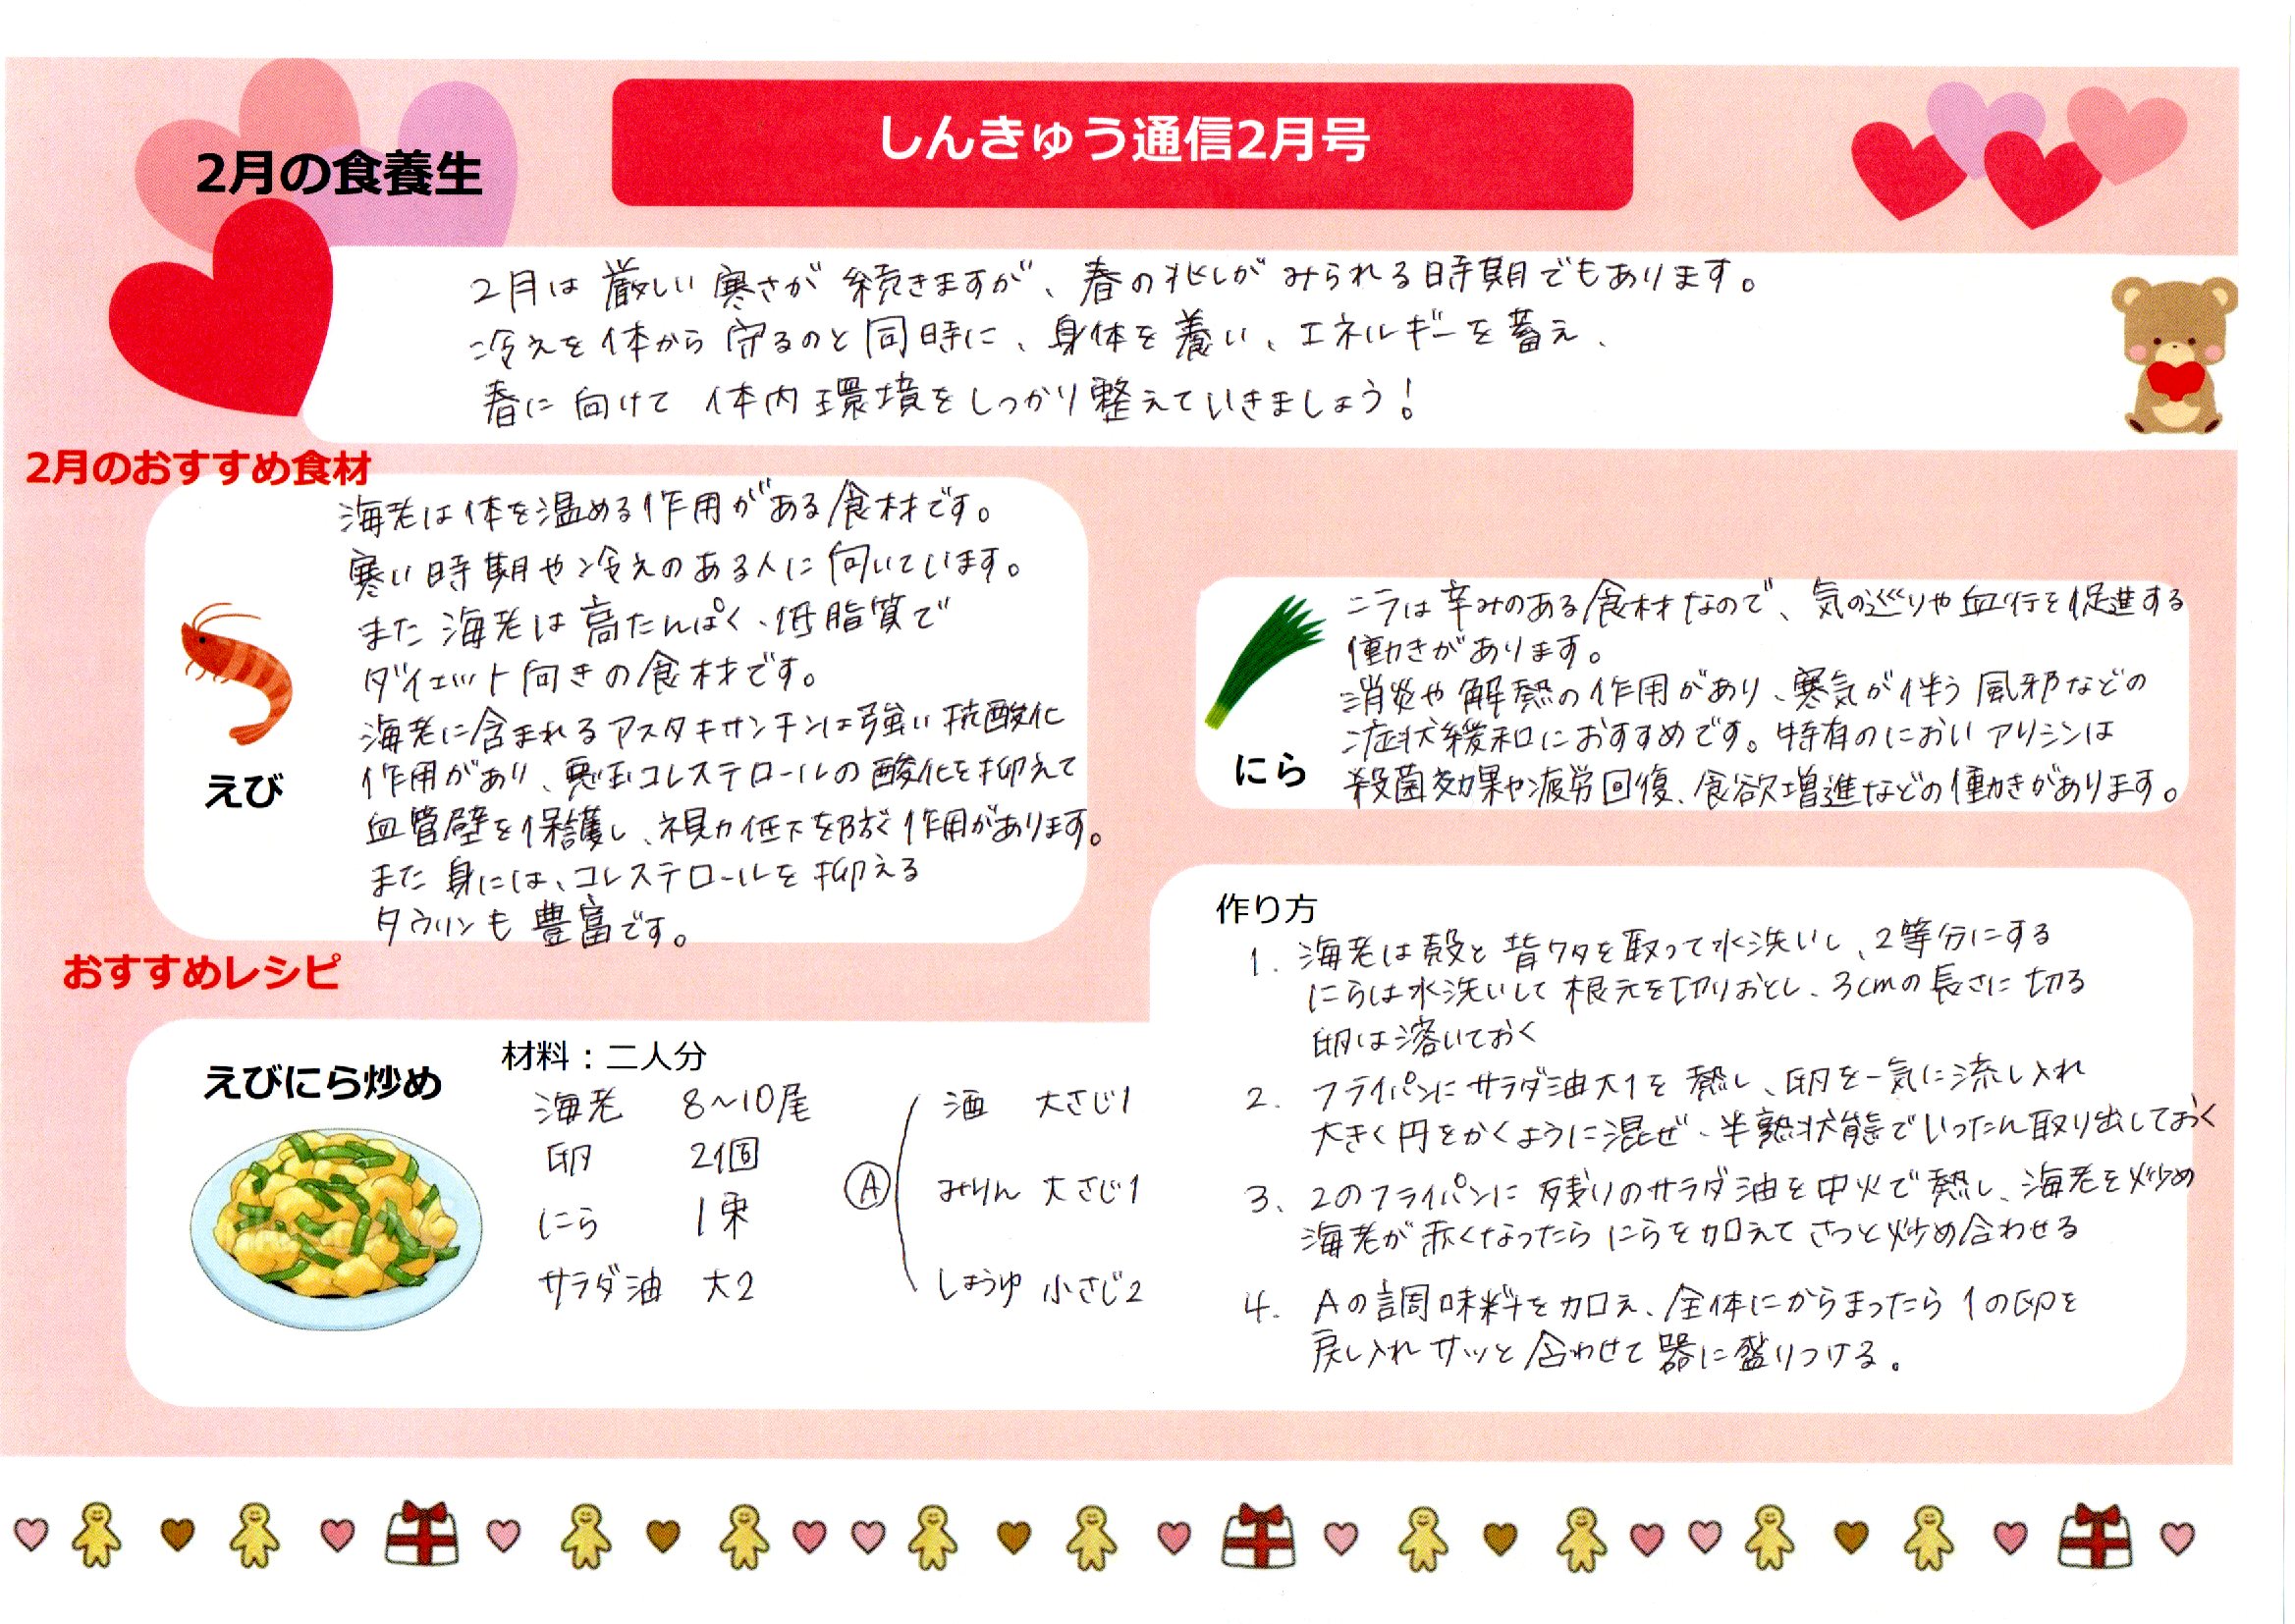 しんきゅう通信2月号
2月の食養生
2月は厳しい寒さが続きますが、春の兆しがみられる時期でもあります。
冷えを体から守るのと同時に、身体を養い、エネルギーを蓄え、
春に向けて体内環境をしっかり整えていきましょう!
2月のおすすめ食材
海老は体を温める作用がある食材です。
寒い時期や冷えのある人に向いています。
また海老は高たんぱく、低脂質で
ダイエット向きの食材です。
海老に含まれるアスタキサンチンは強い抗酸化
作用があり、悪玉コレステロールの酸化を抑えて
血管壁を保護し、視力低下を防ぐ作用があります。
また身には、コレステロールを抑える
タウリンも豊富です。
えび
ニラは辛みのある食材なので、気の巡りや血行を促進する
働きがあります。
消炎や解熱の作用があり、寒気が伴う風邪などの
症状緩和におすすめです。特有のにおいアリシンは
殺菌効果や疲労回復、食欲増進などの働きがあります。
にら
おすすめレシピ
えびにら炒め
材料：二人分
海老 8〜10尾
卵 2個
にら 1束
サラダ油 大2
Ⓐ
酒 大さじ1
みりん 大さじ1
しょうゆ 小さじ2
作り方
1. 海老は殻と背ワタを取って水洗いし、2等分にする
にらは水洗いして根元を切りおとし、3cmの長さに切る
卵は溶いておく
2. フライパンにサラダ油大1を熱し、卵を一気に流し入れ
大きく円をかくように混ぜ、半熟状態でいったん取り出しておく
3、2のフライパンに残りのサラダ油を中火で熱し、海老を炒め
海老が赤くなったらにらを加えてさっと炒め合わせる
4. Aの調味料を加え、全体にからまったら1の卵を
戻し入れサッと合わせて器に盛りつける。